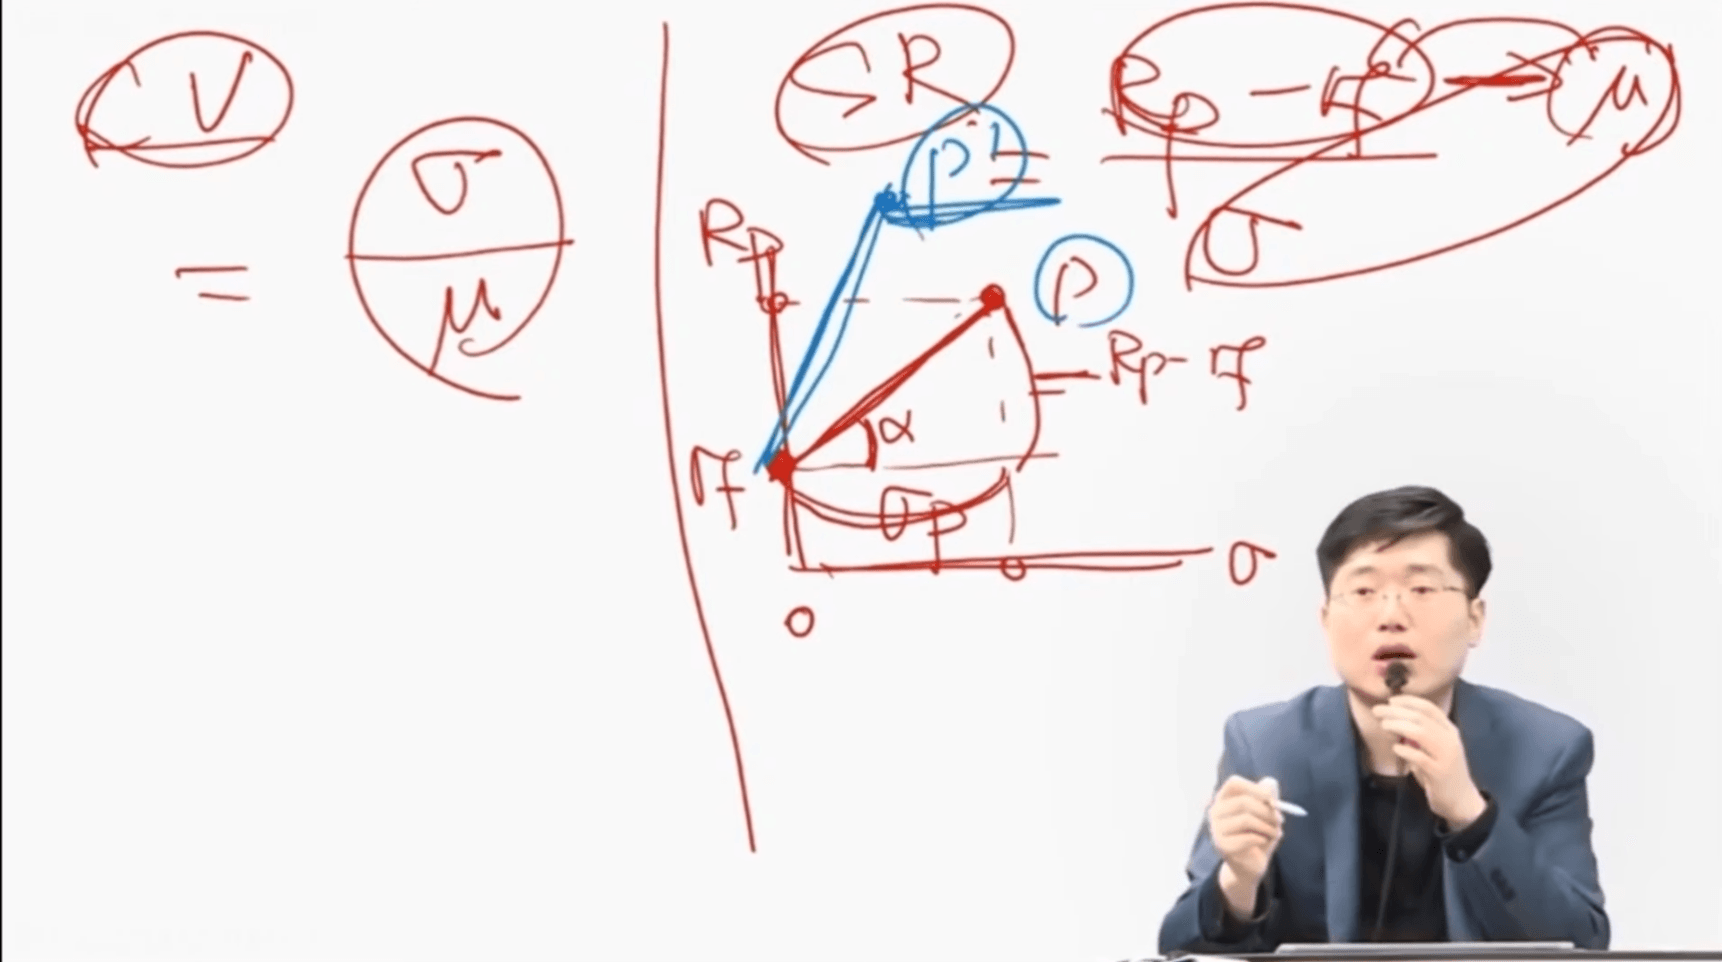 CV
= σ/μ
SR = Rp - rf / σ => μ
p'
Rp
p
= Rp - rf
α
rf
σp
σ
0